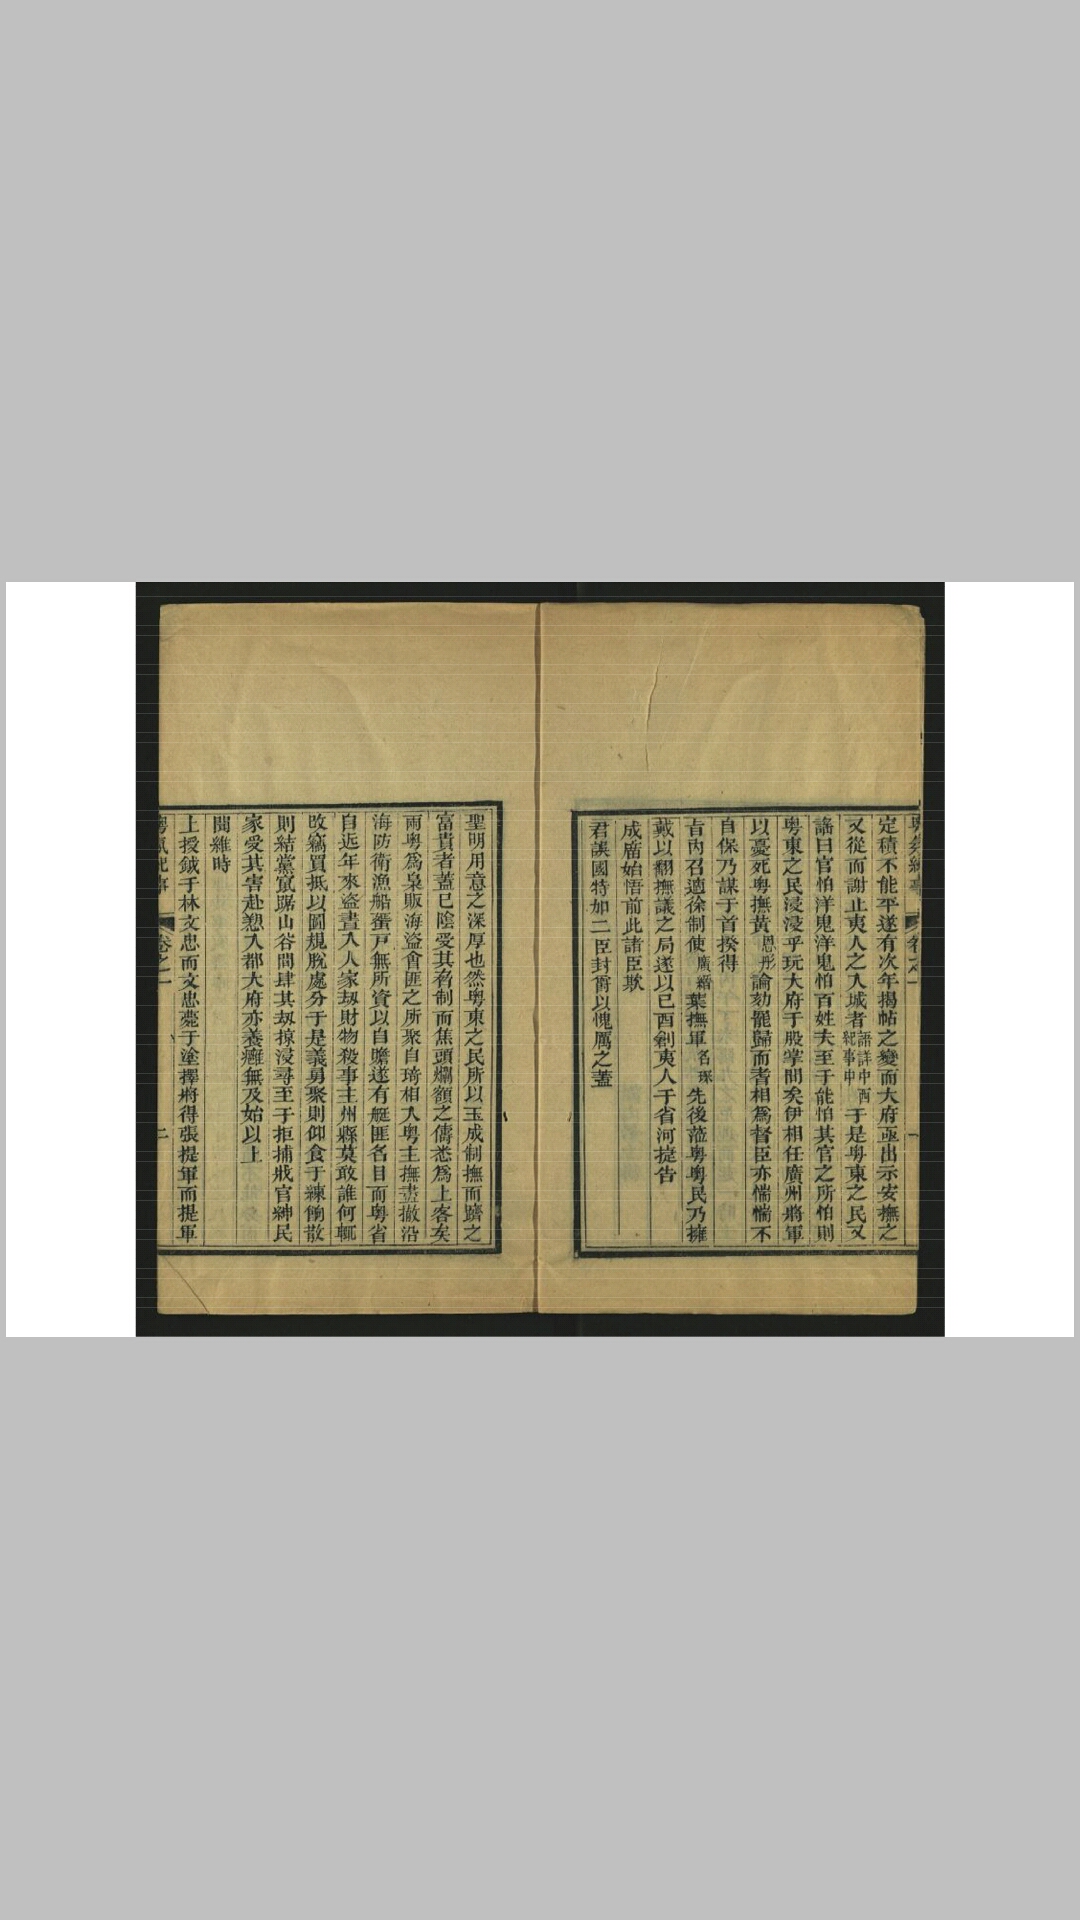 定積不能平遂有次年揭帖之變而大府亟出示安撫之
又從而謝止夷人之入城者語詳中西紀事中于是粤東之民又
謠曰官怕洋鬼洋鬼怕百姓夫至于能怕其官之所怕則
粤東之民浸浸乎玩大府于股掌間矣伊相任廣州將軍
以憂死粤撫黃恩彤論劾罷歸而耆相爲督臣亦惴惴不
自保乃謀于首揆得
旨內召適徐制使廣縉葉撫軍名琛先後蒞粤粤民乃擁
戴以翻撫議之局遂以己酉創夷人于省河捷告
成廟始悟前此諸臣欺
君誤國特加二臣封爵以愧厲之蓋
聖明用意之深厚也然粤東之民所以玉成制撫而躋之
富貴者蓋已陰受其脅制而焦頭爛額之儔悉爲上客矣
兩粤爲梟販海盜會匪之所聚自琦相入粤主撫盡撤沿
海防衛漁船蜑戸無所資以自贍遂有艇匪名目而粤省
自近年來盜晝入人家刼財物殺事主州縣莫敢誰何輒
改竊買抵以圖規脫處分于是義勇聚則仰食于練餉散
則結黨竄踞山谷間肆其刼掠浸尋至于拒捕戕官紳民
家受其害赴愬入都大府亦養癰無及始以上
聞維時
上授鉞于林文忠而文忠薨于塗擇將得張提軍而提軍
卷之一
二